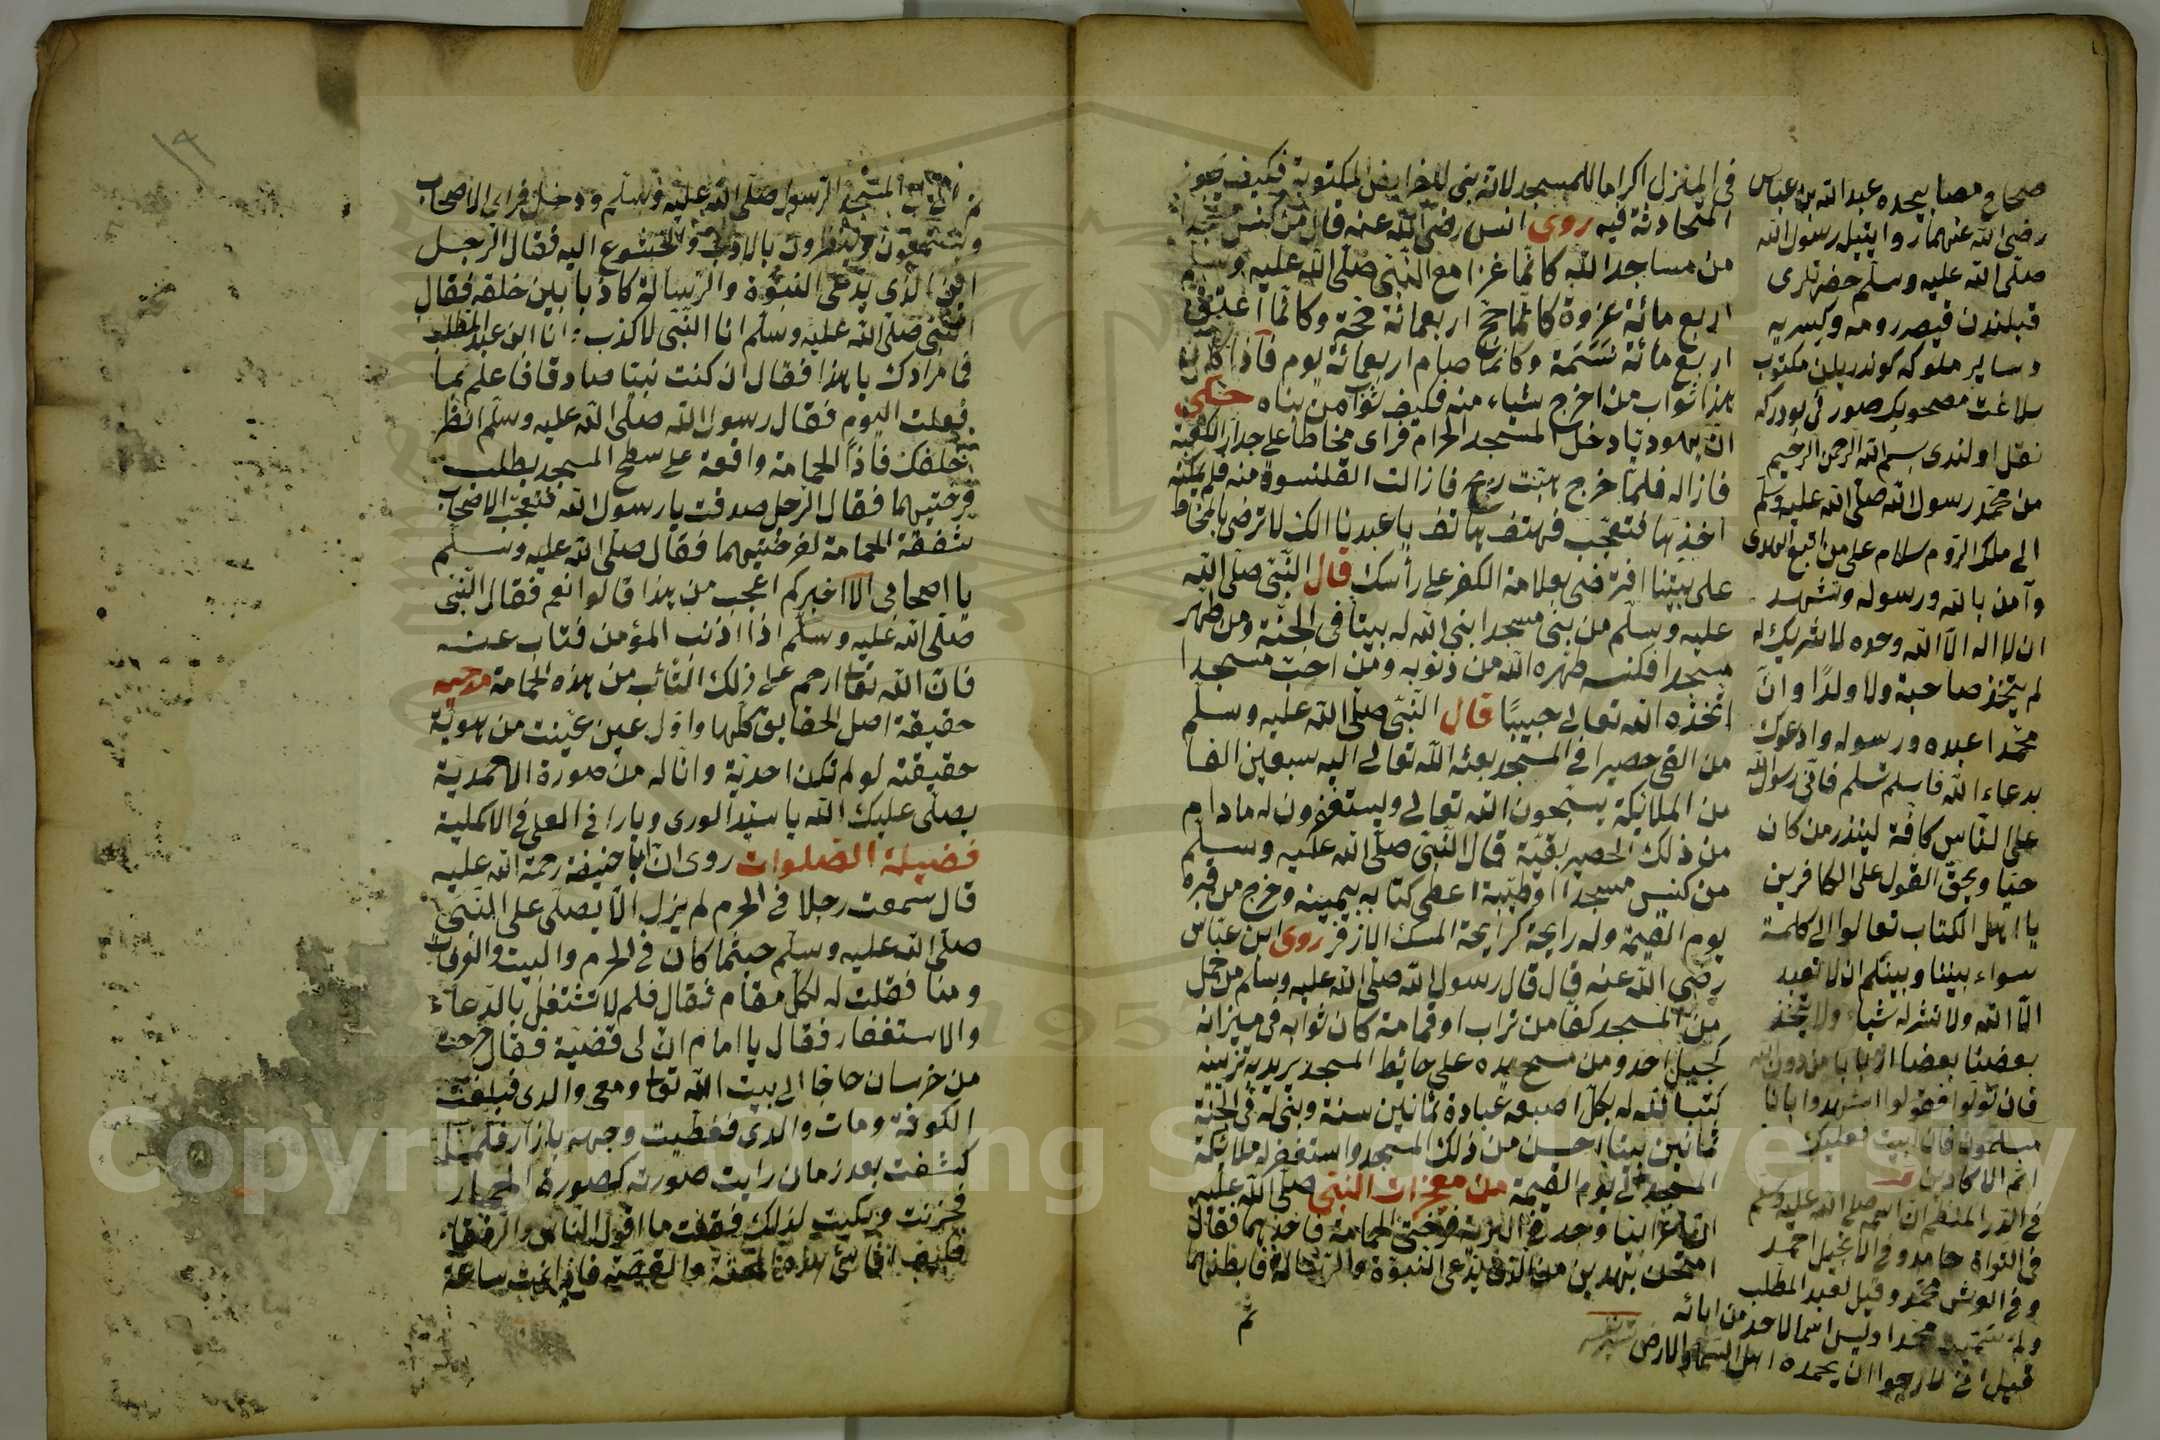 في المنزل اكراما للمسجد لانه بنى للفرايض المكتوبة فكيف يجوز
المحادثة فيه روى انس رضى الله عنه قال من كنس مسجدا
من مساجد الله كانما غزا مع النبى صلى الله عليه وسلم
اربع مائة غزوة كانما حج اربعمائة حجة وكانما اعتق
اربع مائة نسمة وكانما صام اربعمائة يوم فاذا كان
هذا ثواب من اخرج شياء منه فكيف ثواب من بناه حكى
ان يهوديا دخل المسجد الحرام فراى مخاطا على جدار الكعبة
فازاله فلما خرج هبت ريح فازالت القلنسوة منه فلم يمكنه
اخذها فتعجب فهتف هاتف يا عبدنا انك لا ترضى بالمخاط
على بيتنا افترضى بعلامة الكفر على رأسك قال النبى صلى الله
عليه وسلم من بنى مسجدا بنى الله له بيتا فى الجنة ومن طهر
مسجدا فكنسه طهره الله من ذنوبه ومن احب مسجدا
اتخذه الله تعالى حبيبا قال النبى صلى الله عليه وسلم
من القى حصيرا فى المسجد بعثه الله تعالى اليه سبعين الفا
من الملائكة يسبحون الله تعالى ويستغفرون له مادام
من ذلك الحصير بقية قال النبى صلى الله عليه وسلم
من كنس مسجدا او طيبه اعطى كتابه بيمينه وخرج من قبره
يوم القيمة وله رايحة كرايحة المسك الازفر روى ابن عباس
رضى الله عنه قال قال رسول الله صلى الله عليه وسلم من حمل
من المسجد كفا من تراب او قمامة كان ثوابه فى ميزانه
كجبل احد ومن مسح يده على حائط المسجد يريد تزيينه
كتب الله له بكل اصبعه عبادة ثمانين سنة وبنى له فى الجنة
ثمانين بيتا احسن من ذلك المسجد واستغفر له ملائكة
المسجد الى يوم القيمة من معجزات النبى صلى الله عليه
ان اعرابيا وجد فى البرية فرختى الحمامة فاخذهما فقال
امتحن بهذين من الذى يدعى النبوة والرسالة فابطنهما
ثم
صحاح مصابيحده عبد الله بن عباس
رضى الله عنهما روايتيله رسول الله
صلى الله عليه وسلم حضرتلرى
قبلندن قيصر رومه وكسريه
وساير ملوكه كوندريلن مكتوب
بلاغت مصحوبك صورتى بودركه
نقل اولندى بسم الله الرحمن الرحيم
من محمد رسول الله صلى الله عليه وسلم
الى ملك الروم سلام على من اتبع الهدى
وآمن بالله ورسوله وتشهد
ان لا اله الا الله وحده لا شريك له
لم يتخذ صاحبة ولا ولدا وان
محمدا عبده ورسوله وادعوك
بدعاء الله فاسلم تسلم فانى رسول الله
على الناس كافة لينذر من كان
حيا ويحق القول على الكافرين
يا اهل الكتاب تعالوا الى كلمة
سواء بيننا وبينكم ان لا نعبد
الا الله ولا نشرك به شياء ولا يتخذ
بعضنا بعضا اربابا من دون الله
فان تولوا فقولوا اشهدوا بانا
مسلمون فان ابيت فعليك
اثم الاكارين
فى الدر المنظم ان اسمه صلى الله عليه وسلم
فى التوراة حامد وفى الانجيل احمد
وفى العرش محمد وقيل لعبد المطلب
ولم سميت محمدا وليس اسما لاحد من ابائه
قيل انى لارجوا ان يحمده اهل السماء والارض
١٩
المسجد الرسول صلى الله عليه وسلم ودخل فراى الاصحاب
يستمعون وينظرون بالادب والخشوع اليه فقال الرجل
اين الذى يدعى النبوة والرسالة كاذبا بين خلقه فقال
النبى صلى الله عليه وسلم انا النبى لا كذب انا ابن عبد المطلب
فما مرادك يا هذا فقال ان كنت نبيا صادقا فاعلم بما
فعلت اليوم فقال رسول الله صلى الله عليه وسلم انظر
خلفك فاذا الحمامة واقعة على سطح المسجد يطلب
فرختيهما فقال الرجل صدقت يا رسول الله فتعجب الاصحاب
شفقة الحمامة لفرختيهما فقال صلى الله عليه وسلم
يا اصحابى الا اخبركم اعجب من هذا قالوا نعم فقال النبى
صلى الله عليه وسلم اذا اذنب المؤمن فتاب عنه
فان الله تعا ارحم على ذلك التائب من هذه الحمامة مدحيه
حقيقة اصل الحقايق كلها واول عين عينت من هوية
حقيقته لو لم تكن احدية وانا له من صورة الاحمدية
يصلى عليك الله يا سيد الورى ويارا فى المعلى فى الاكملية
فضيلة الصلوات روى ان ابا حنيفة رحمة الله عليه
قال سمعت رجلا فى الحرم لم يزل الا يصلى على النبى
صلى الله عليه وسلم حيثما كان فى الحرم والبيت والعرفات
ومنا فقلت له لكل مقام مقال فلم لا تشتغل بالدعاء
والاستغفار فقال يا امام ان لى قضية فقال خرجت
من خرسان حاجا الى بيت الله تعا ومعى والدى فبلغت
الكوفة ومات والدى فغطيت وجهه بازار فلما
كشفت بعد زمان رايت صورته كصورة الحمار
فحزنت وبكيت لذلك فقلت ما اقول للناس والرفقاء
فكيف افاشى هذه المحنة والقصية فاذا غبت ساعة